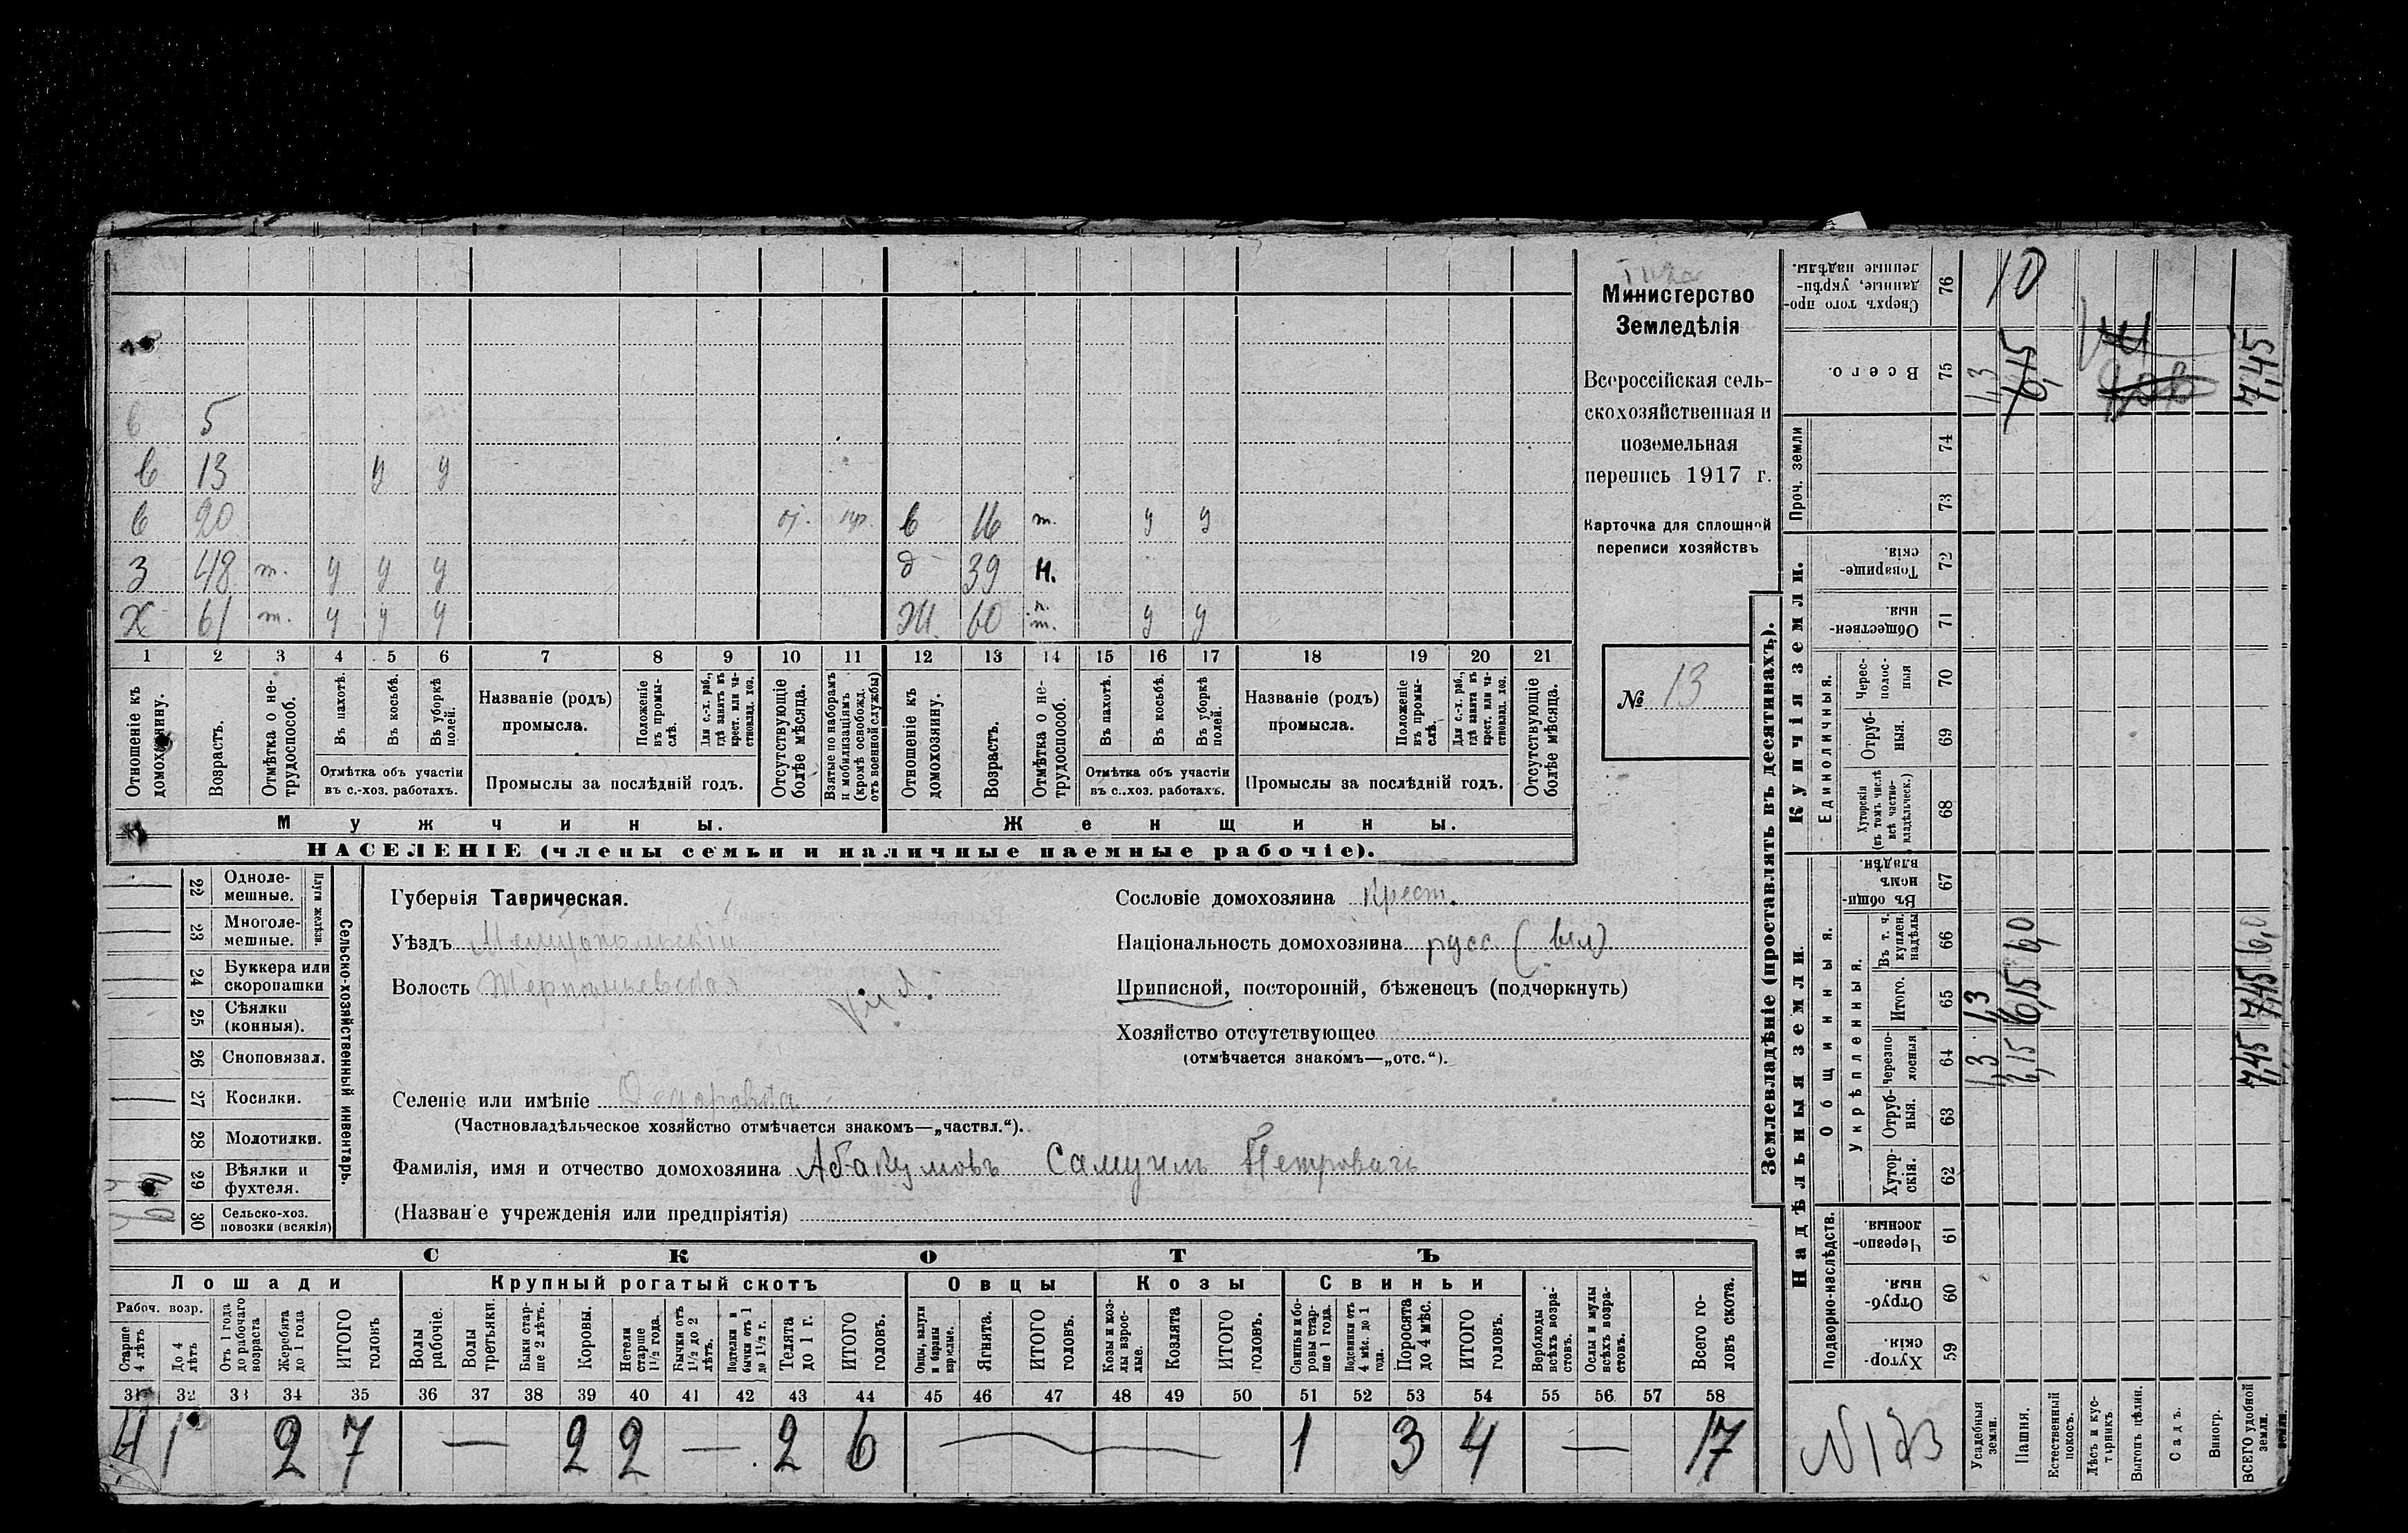 Министерство
Земледѣлія
Всероссійская сель-
скохозяйственная и
поземельная
перепись 1917 г.
Карточка для сплошной
переписи хозяйствъ
№ 13
в 5
в 13 у у
в 20 от. пр. в 16 т. у у
з 48 т. у у у д 39 н.
х 61 т. у у у ж 60 п. т. у у
1 2 3 4 5 6 7 8 9 10 11 12 13 14 15 16 17 18 19 20 21
Отношеніе къ домохозяину.
Возрастъ.
Отмѣтка о не-трудоспособ.
Въ пахотѣ.
Въ косьбѣ.
Въ уборкѣ полей.
Отмѣтка объ участіи въ с.-хоз. работахъ.
Названіе (родъ) промысла.
Положеніе въ промы-слѣ.
Для с.-х. раб., гдѣ занятъ въ крест. или ча-стновлад. хоз.
Промыслы за послѣдній годъ.
Отсутствующіе болѣе мѣсяца.
Взятые по наборамъ и мобилизаціямъ (кромѣ освобожд. отъ военной службы)
Отношеніе къ домохозяину.
Возрастъ.
Отмѣтка о не-трудоспособ.
Въ пахотѣ.
Въ косьбѣ.
Въ уборкѣ полей.
Отмѣтка объ участіи въ с.-хоз. работахъ.
Названіе (родъ) промысла.
Положеніе въ промы-слѣ.
Для с.-х. раб., гдѣ занята въ крест. или ча-стновлад. хоз.
Промыслы за послѣдній годъ.
Отсутствующіе болѣе мѣсяца.
Мужчины. Женщины.
НАСЕЛЕНІЕ (члены семьи и наличные наемные рабочіе).
22 Одноле-мешные.
23 Многоле-мешные.
Плуги желѣзн.
24 Буккера или скоропашки
25 Сѣялки (конныя).
26 Сноповязал.
27 Косилки.
28 Молотилки.
29 Вѣялки и фухтеля.
30 Сельско-хоз. повозки (всякія)
Сельско-хозяйственный инвентарь.
Губернія Таврическая.
Уѣздъ Мелитопольскій
Волость Терпѣньевская
Селеніе или имѣніе Федоровка
(Частновладѣльческое хозяйство отмѣчается знакомъ—„частвл.“).
Фамилія, имя и отчество домохозяина Абакумовъ Самуилъ Петровичъ
(Названіе учрежденія или предпріятія)
Сословіе домохозяина Крест.
Національность домохозяина русс. (вел)
Приписной, посторонній, бѣженецъ (подчеркнуть)
Хозяйство отсутствующее
(отмѣчается знакомъ—„отс.“).
СКОТЪ
Лошади Крупный рогатый скотъ Овцы Козы Свиньи
Рабоч. возр.
Старше 4 лѣтъ
До 4 лѣтъ
Отъ 1 года до рабочаго возраста
Жеребята до 1 года
ИТОГО головъ
Волы рабочіе.
Волы третьяки.
Быки стар-ше 2 лѣтъ.
Коровы.
Нетели старше 1½ года.
Бычки отъ 1½ до 2 лѣтъ.
Подтелки и бычки отъ 1 до 1½ г.
Телята до 1 г.
ИТОГО головъ.
Овцы, валухи и бараны взрослые.
Ягнята.
ИТОГО головъ.
Козы и коз-лы взрос-лые.
Козлята
ИТОГО головъ.
Свиньи и бо-ровы стар-ше 1 года.
Подсвинки отъ 4 мѣс. до 1 года.
Поросята до 4 мѣс.
ИТОГО головъ.
Верблюды всѣхъ возра-стовъ.
Ослы и мулы всѣхъ возра-стовъ.
Всего го-ловъ скота.
31 32 33 34 35 36 37 38 39 40 41 42 43 44 45 46 47 48 49 50 51 52 53 54 55 56 57 58
4 1 2 7 — 2 2 — 2 6 — 1 3 4 — 17
Землевладѣніе (проставлять въ десятинахъ).
Купчія земли.
Надѣльныя земли.
Сверхъ того про-данные, укрѣп-ленные надѣлы. 76 10
Всего. 75 1,3 6,15 7,45
Проч. земли 74 73
Товарище-скія. 72
Обществен-ныя. 71
Единоличныя.
Черес-полос-ныя 70
Отруб-ныя. 69
Хуторскія (въ томъ числѣ всѣ частно-владѣльческ.) 68
Общинныя.
Въ общи-номъ владѣн. 67
Укрѣпленныя.
Въ т. ч. куплен. надѣлы 66 6,0 6,0
Итого. 65 1,3 6,15 7,45
Черезпо-лосныя 64 1,3 6,15 7,45
Отруб-ныя. 63
Хутор-скія. 62
Подворно-наслѣдств.
Черезпо-лосныя. 61
Отруб-ныя. 60
Хутор-скія. 59
N 123
Усадебныя земли.
Пашня.
Естественный покосъ.
Лѣсъ и кус-тарникъ.
Выгонъ цѣлин.
Садъ.
Виногр.
ВСЕГО удобной земли.